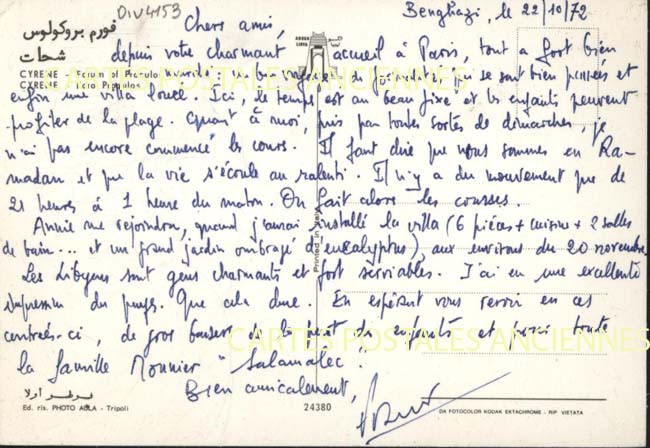 DIV4153
Benghazi, le 22/10/72
فورم بروكولوس
شحات
CYRENE - Forum of Proculo
CYRENE - Foro Proculos
Chers amis,
depuis votre charmant accueil à Paris, tout a fort bien
formalités qui se sont bien passées et
enfin une villa louée. Ici, le temps est au beau fixe et les enfants peuvent
profiter de la plage. Quant à moi, pris par toutes sortes de démarches, je
n'ai pas encore commencé les cours. Il faut dire que nous sommes en Ra-
madan et que la vie s'écoule au ralenti. Il n'y a du mouvement que de
21 heures à 1 heure du matin. On fait alors les courses.
Annie me rejoindra, quand j'aurai installé la villa (6 pièces + cuisine + 2 salles
de bain... et un grand jardin ombragé d'eucalyptus), aux environs du 20 novembre.
Les Libyens sont gens charmants et fort serviables. J'ai eu une excellente
impression du pays. Que cela dure. En espérant vous revoir en ces
contrées-ci, de gros baisers à enfants et pour toute
la famille Monnier "Salamalec".
Bien amicalement,
Printed in Italy
CARTES POSTALES ANCIENNES
CARTES POSTALES ANCIENNES
Ed. ris. PHOTO AULA - Tripoli
24380
DA FOTOCOLOR KODAK EKTACHROME - RIP VIETATA